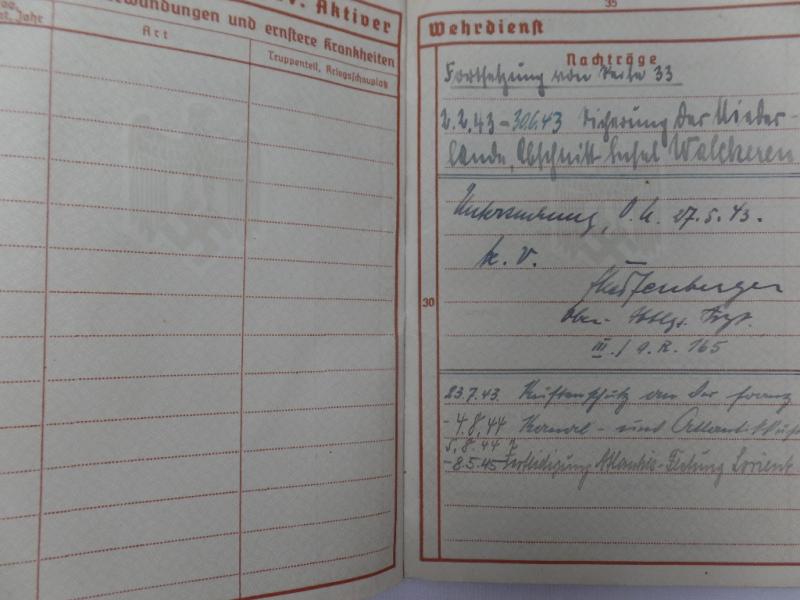 v. Aktiver
wundungen und ernstere Krankheiten
Jahr
Art
Truppenteil, Kriegsschauplatz
35
Wehrdienst
Nachträge
Fortsetzung von Seite 33
2.2.43 – 30.6.43 Sicherung der Nieder-
lande, Abschnitt Insel Walcheren
Untersuchung, O.U. 27.5.43.
k. v.
30
Ober-
III./A.R. 165
23.7.43. Küstenschutz an der franz
- 4.8.44 Kanal- und Atlantikküst
5.8.44
- 8.5.45 Verteidigung Atlantik-Festung Lorient